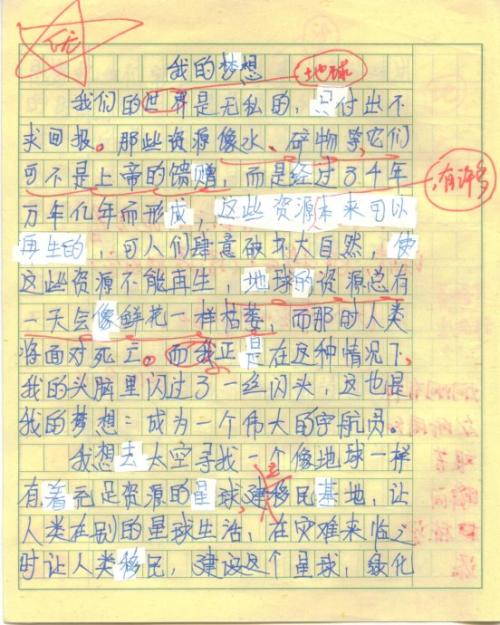 优
我的梦想
地球
我们的世界是无私的，只付出不
求回报。那些资源像水、矿物等，它们
可不是上帝的馈赠，而是经过34年
有许多
万年亿年而形成，这些资源本来可以
再生的，可人们肆意破坏大自然，使
这些资源不能再生，地球的资源总有
一天会像鲜花一样枯萎，而那时人类
将面对死亡。而我正是在这种情况下，
我的头脑里闪过了一丝闪头，这也是
我的梦想：成为一个伟大的宇航员。
我想去太空寻找一个像地球一样
有着充足资源的星球，建移民基地，让
人类在别的星球生活，在灾难来临之
时让人类移民，建设这个星球，绿化